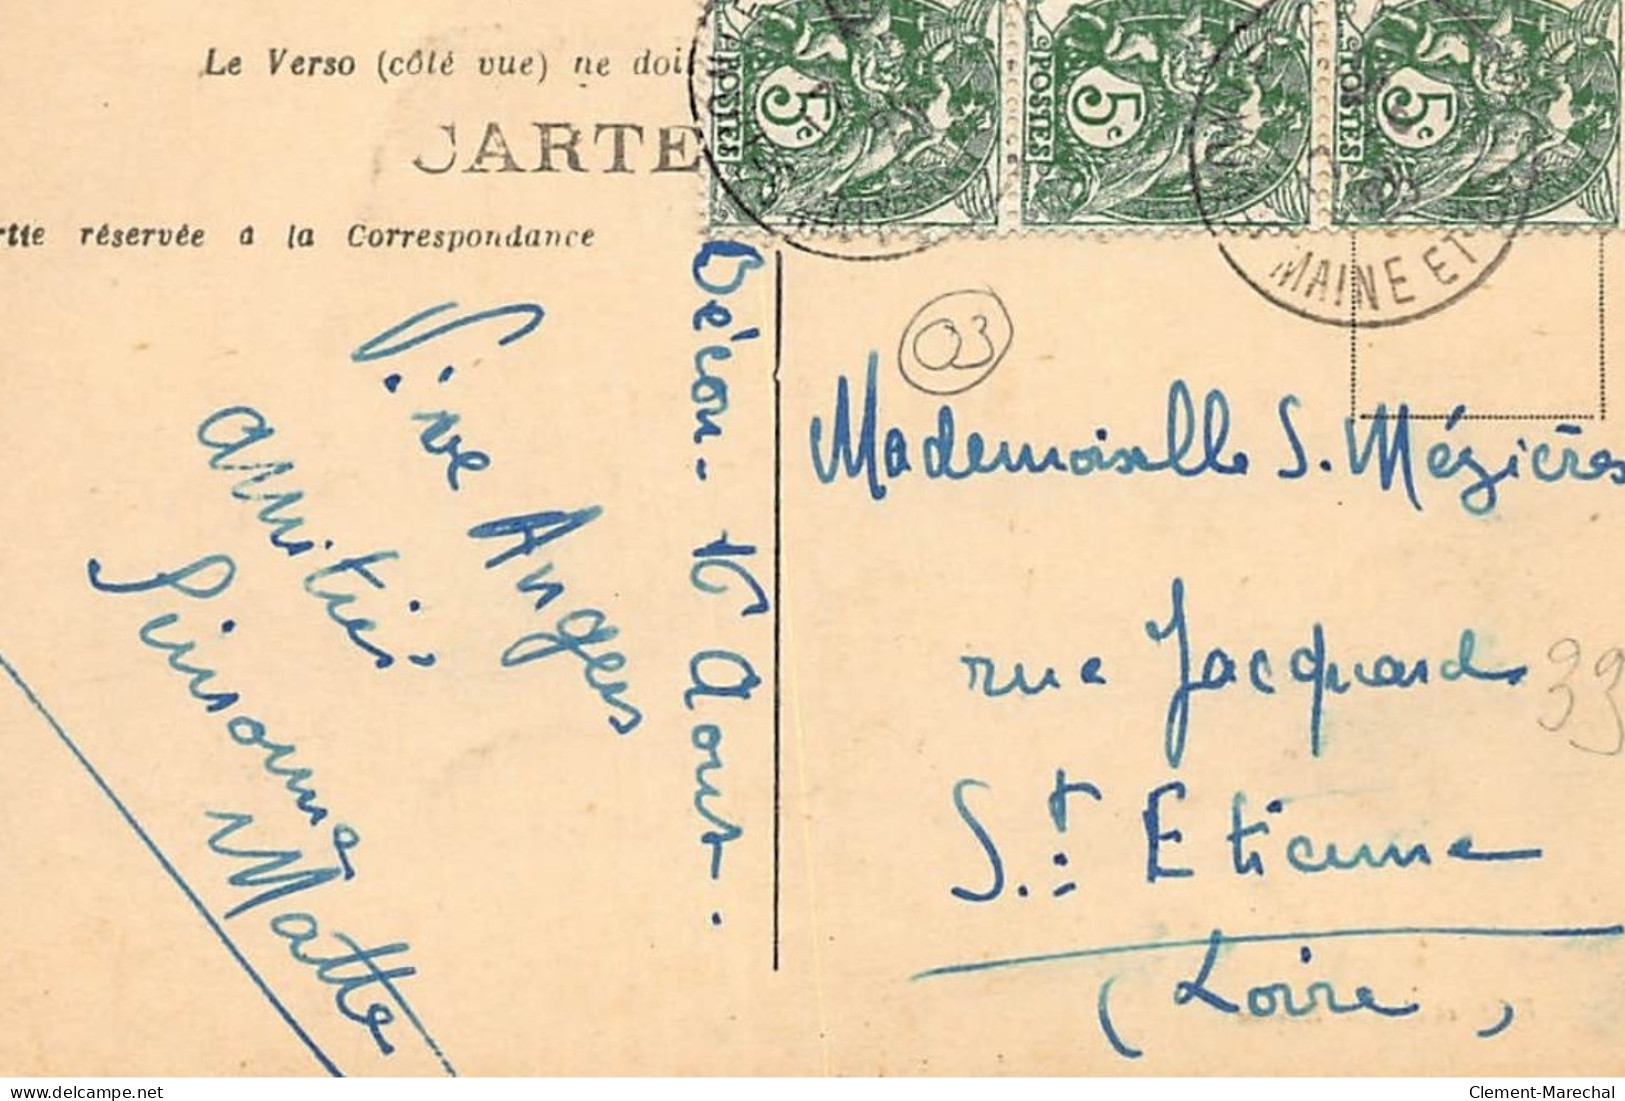 Le Verso (côté vue) ne doi
CARTE
rtie réservée à la Correspondance
POSTES 5c
POSTES 5c
POSTES 5c
MAINE ET
Bécon. 16 Aout.
Vive Angers
amitiés
Simonne
Matte
03
Mademoiselle S. Mézières
rue Jacquard
33
St. Etienne
(Loire)
delcampe.net
Clement-Marechal